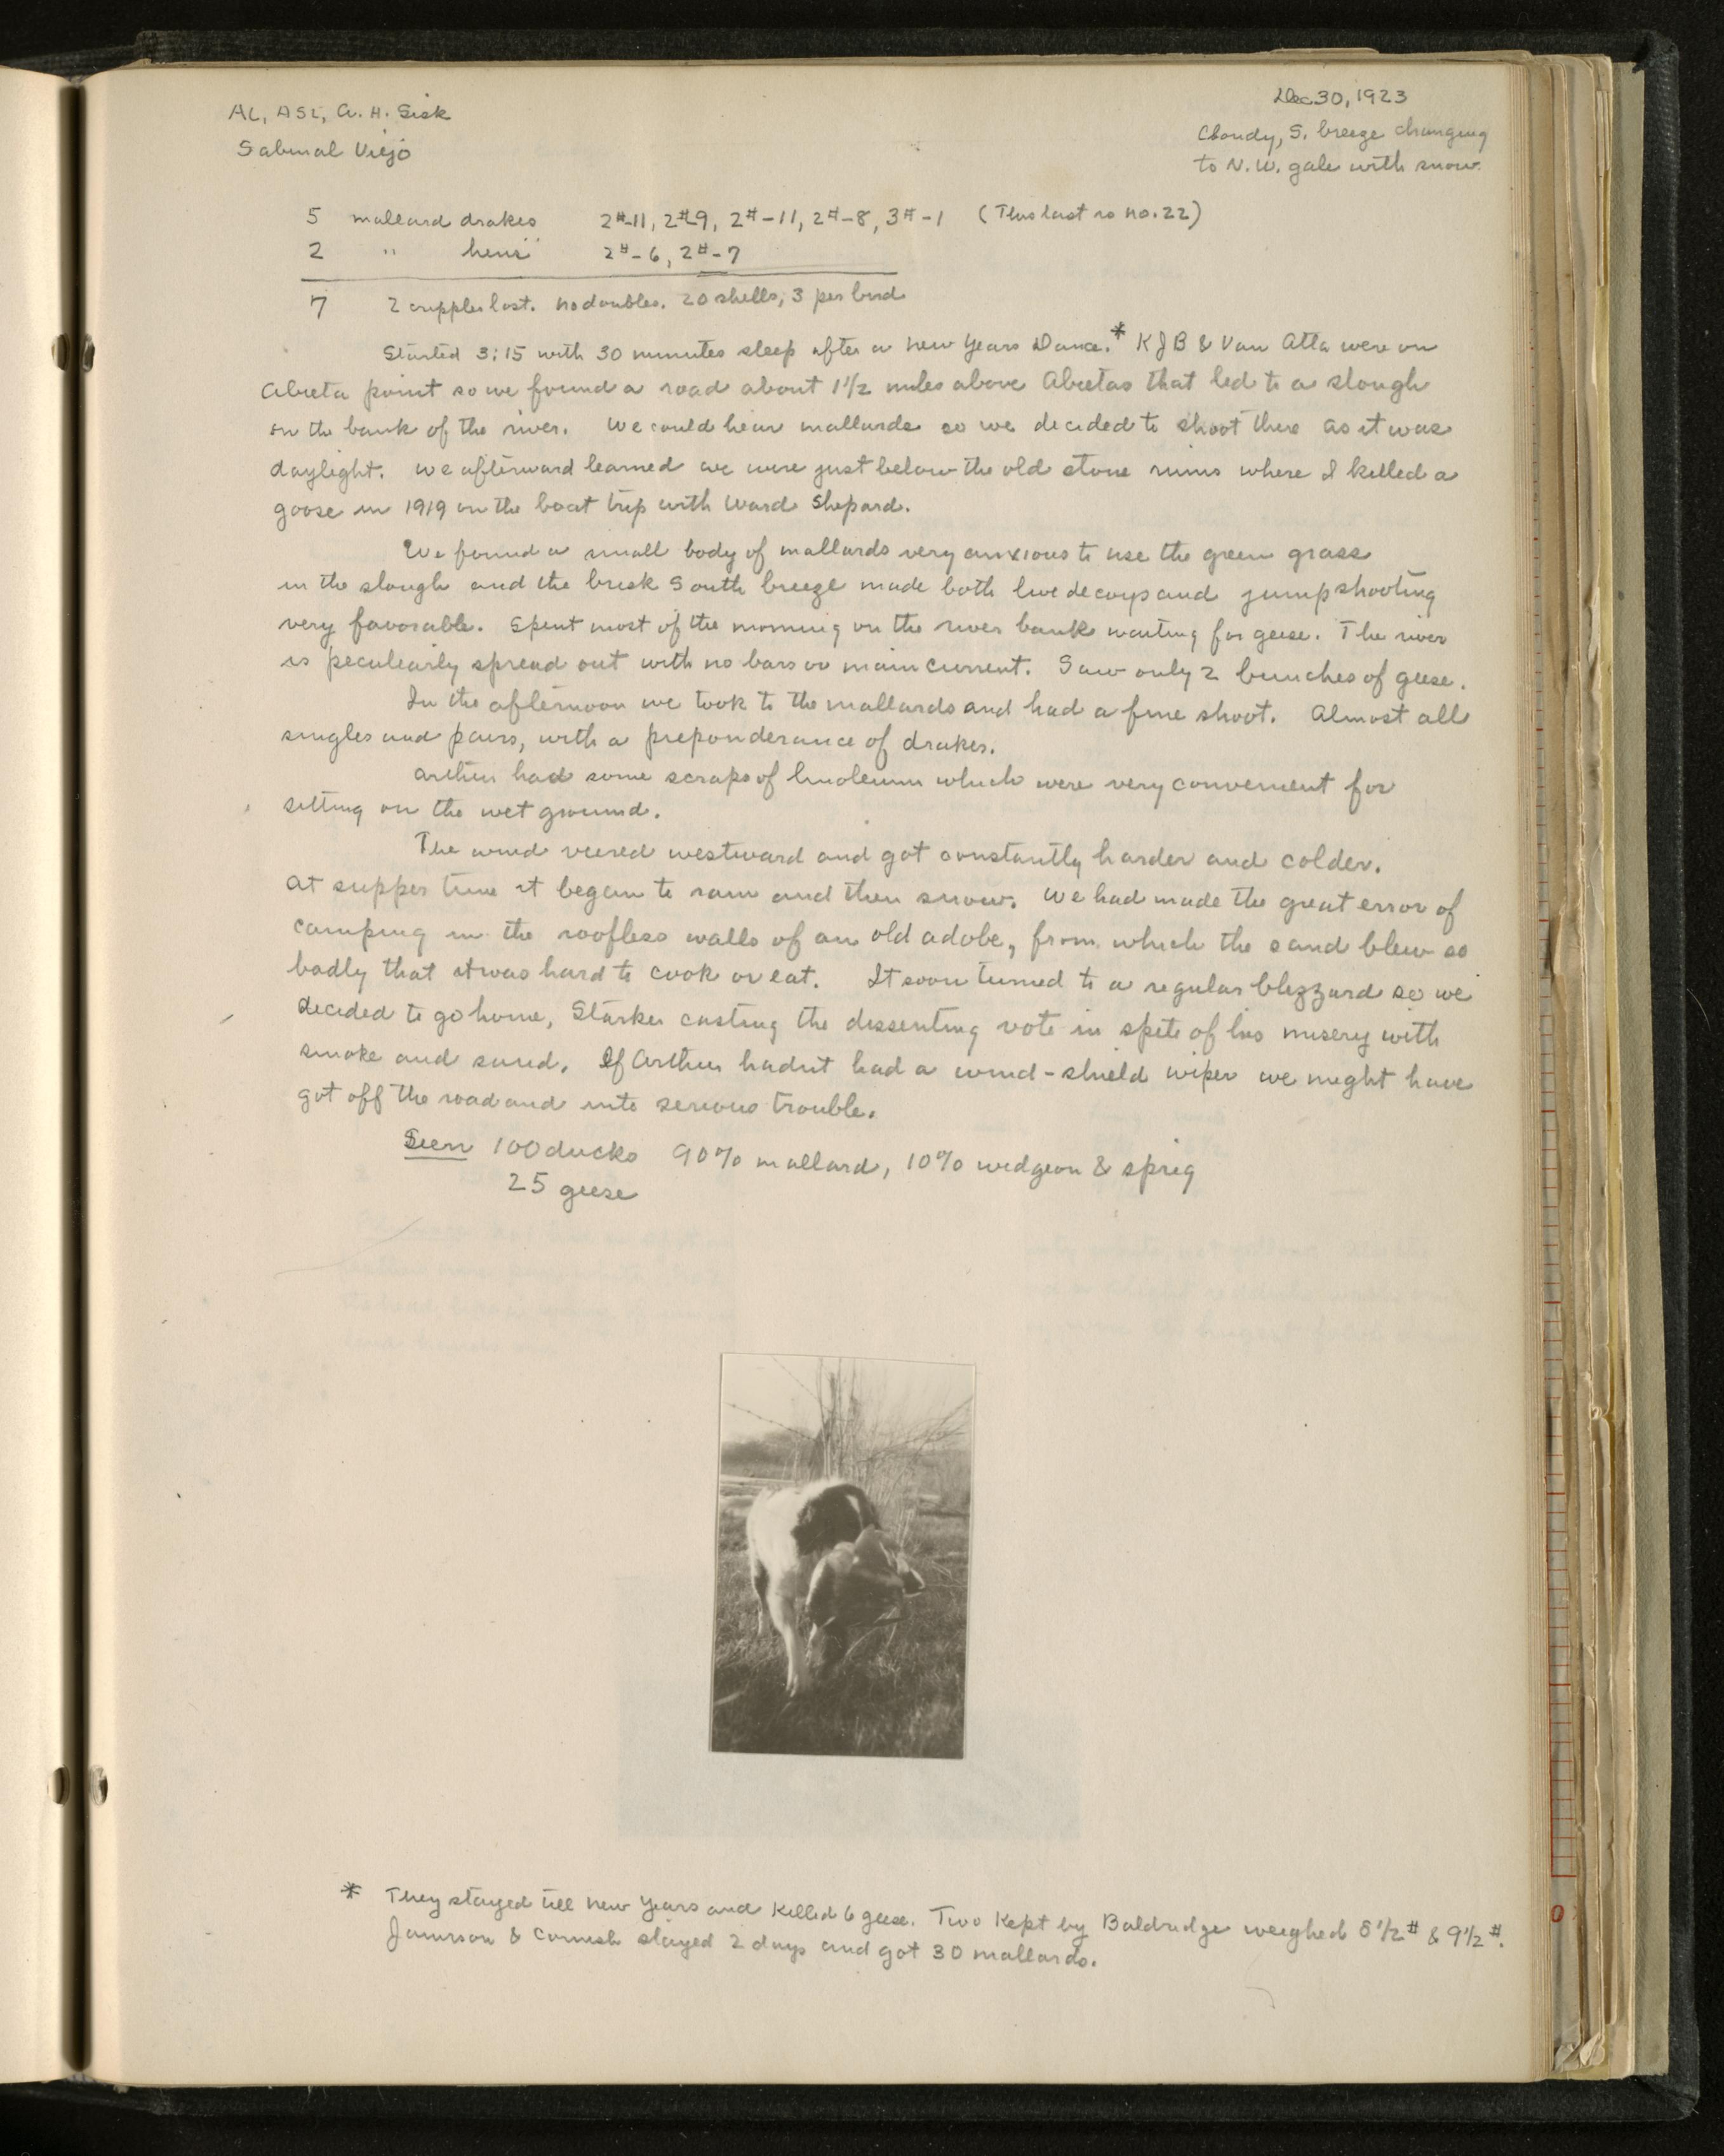 AL, ASL, A. H. Sisk
Sabinal Viejo
Dec. 30, 1923
Cloudy, S. breeze changing
to N.W. gale with snow.
5 mallard drakes 2#-11, 2#-9, 2#-11, 2#-8, 3#-1 (This last is no. 22)
2 " hens 2#-6, 2#-7
7 2 cripples lost. No doubles. 20 shells, 3 per bird
Started 3:15 with 30 minutes sleep after a New Years Dance.* KJB & Van Atta were on
Abeita point so we found a road about 1 1/2 miles above Abeitas that led to a slough
on the bank of the river. We could hear mallards so we decided to shoot there as it was
daylight. We afterward learned we were just below the old stone ruins where I killed a
goose in 1919 on the boat trip with Ward Shepard.
We found a small body of mallards very anxious to use the green grass
in the slough and the brisk South breeze made both live decoys and jumpshooting
very favorable. Spent most of the morning on the river bank waiting for geese. The river
is peculiarly spread out with no bars or main current. Saw only 2 bunches of geese.
In the afternoon we took to the mallards and had a fine shoot. Almost all
singles and pairs, with a preponderance of drakes.
Arthur had some scraps of linoleum which were very convenient for
sitting on the wet ground.
The wind veered westward and got constantly harder and colder.
At supper time it began to rain and then snow. We had made the great error of
camping in the roofless walls of an old adobe, from which the sand blew so
badly that it was hard to cook or eat. It soon turned to a regular blizzard so we
decided to go home, Starker casting the dissenting vote in spite of his misery with
smoke and sand. If Arthur hadn't had a wind-shield wiper we might have
got off the road and into serious trouble.
Seen 100 ducks 90% mallard, 10% widgeon & sprig
25 geese
* They stayed till New Years and killed 6 geese. Two kept by Baldridge weighed 8 1/2# & 9 1/2#.
Jamison & Cornish stayed 2 days and got 30 mallards.